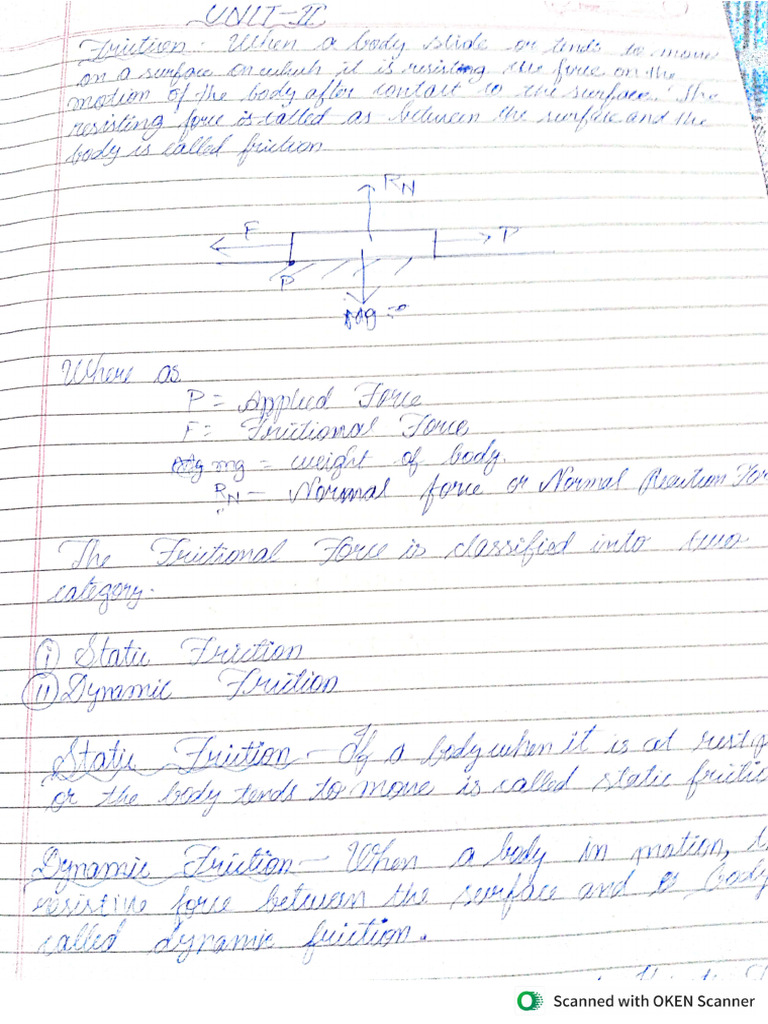 UNIT-II
Friction:- When a body slide or tends to move
on a surface on which it is resisting the force on the
motion of the body after contact to the surface. The
resisting force is called as between the surface and the
body is called friction
RN
F
P
P
Mg =
Where as
P = Applied Force
F = Frictional Force
mg = weight of body.
RN - Normal force or Normal Reactum For
The Frictional Force is classified into two
category.
(i) Static Friction
(ii) Dynamic Friction
Static Friction - If a body when it is at rest
or the body tends to move is called static frictio
Dynamic Friction - When a body in motion, t
resistive force between the surface and body
called dynamic friction.
Scanned with OKEN Scanner